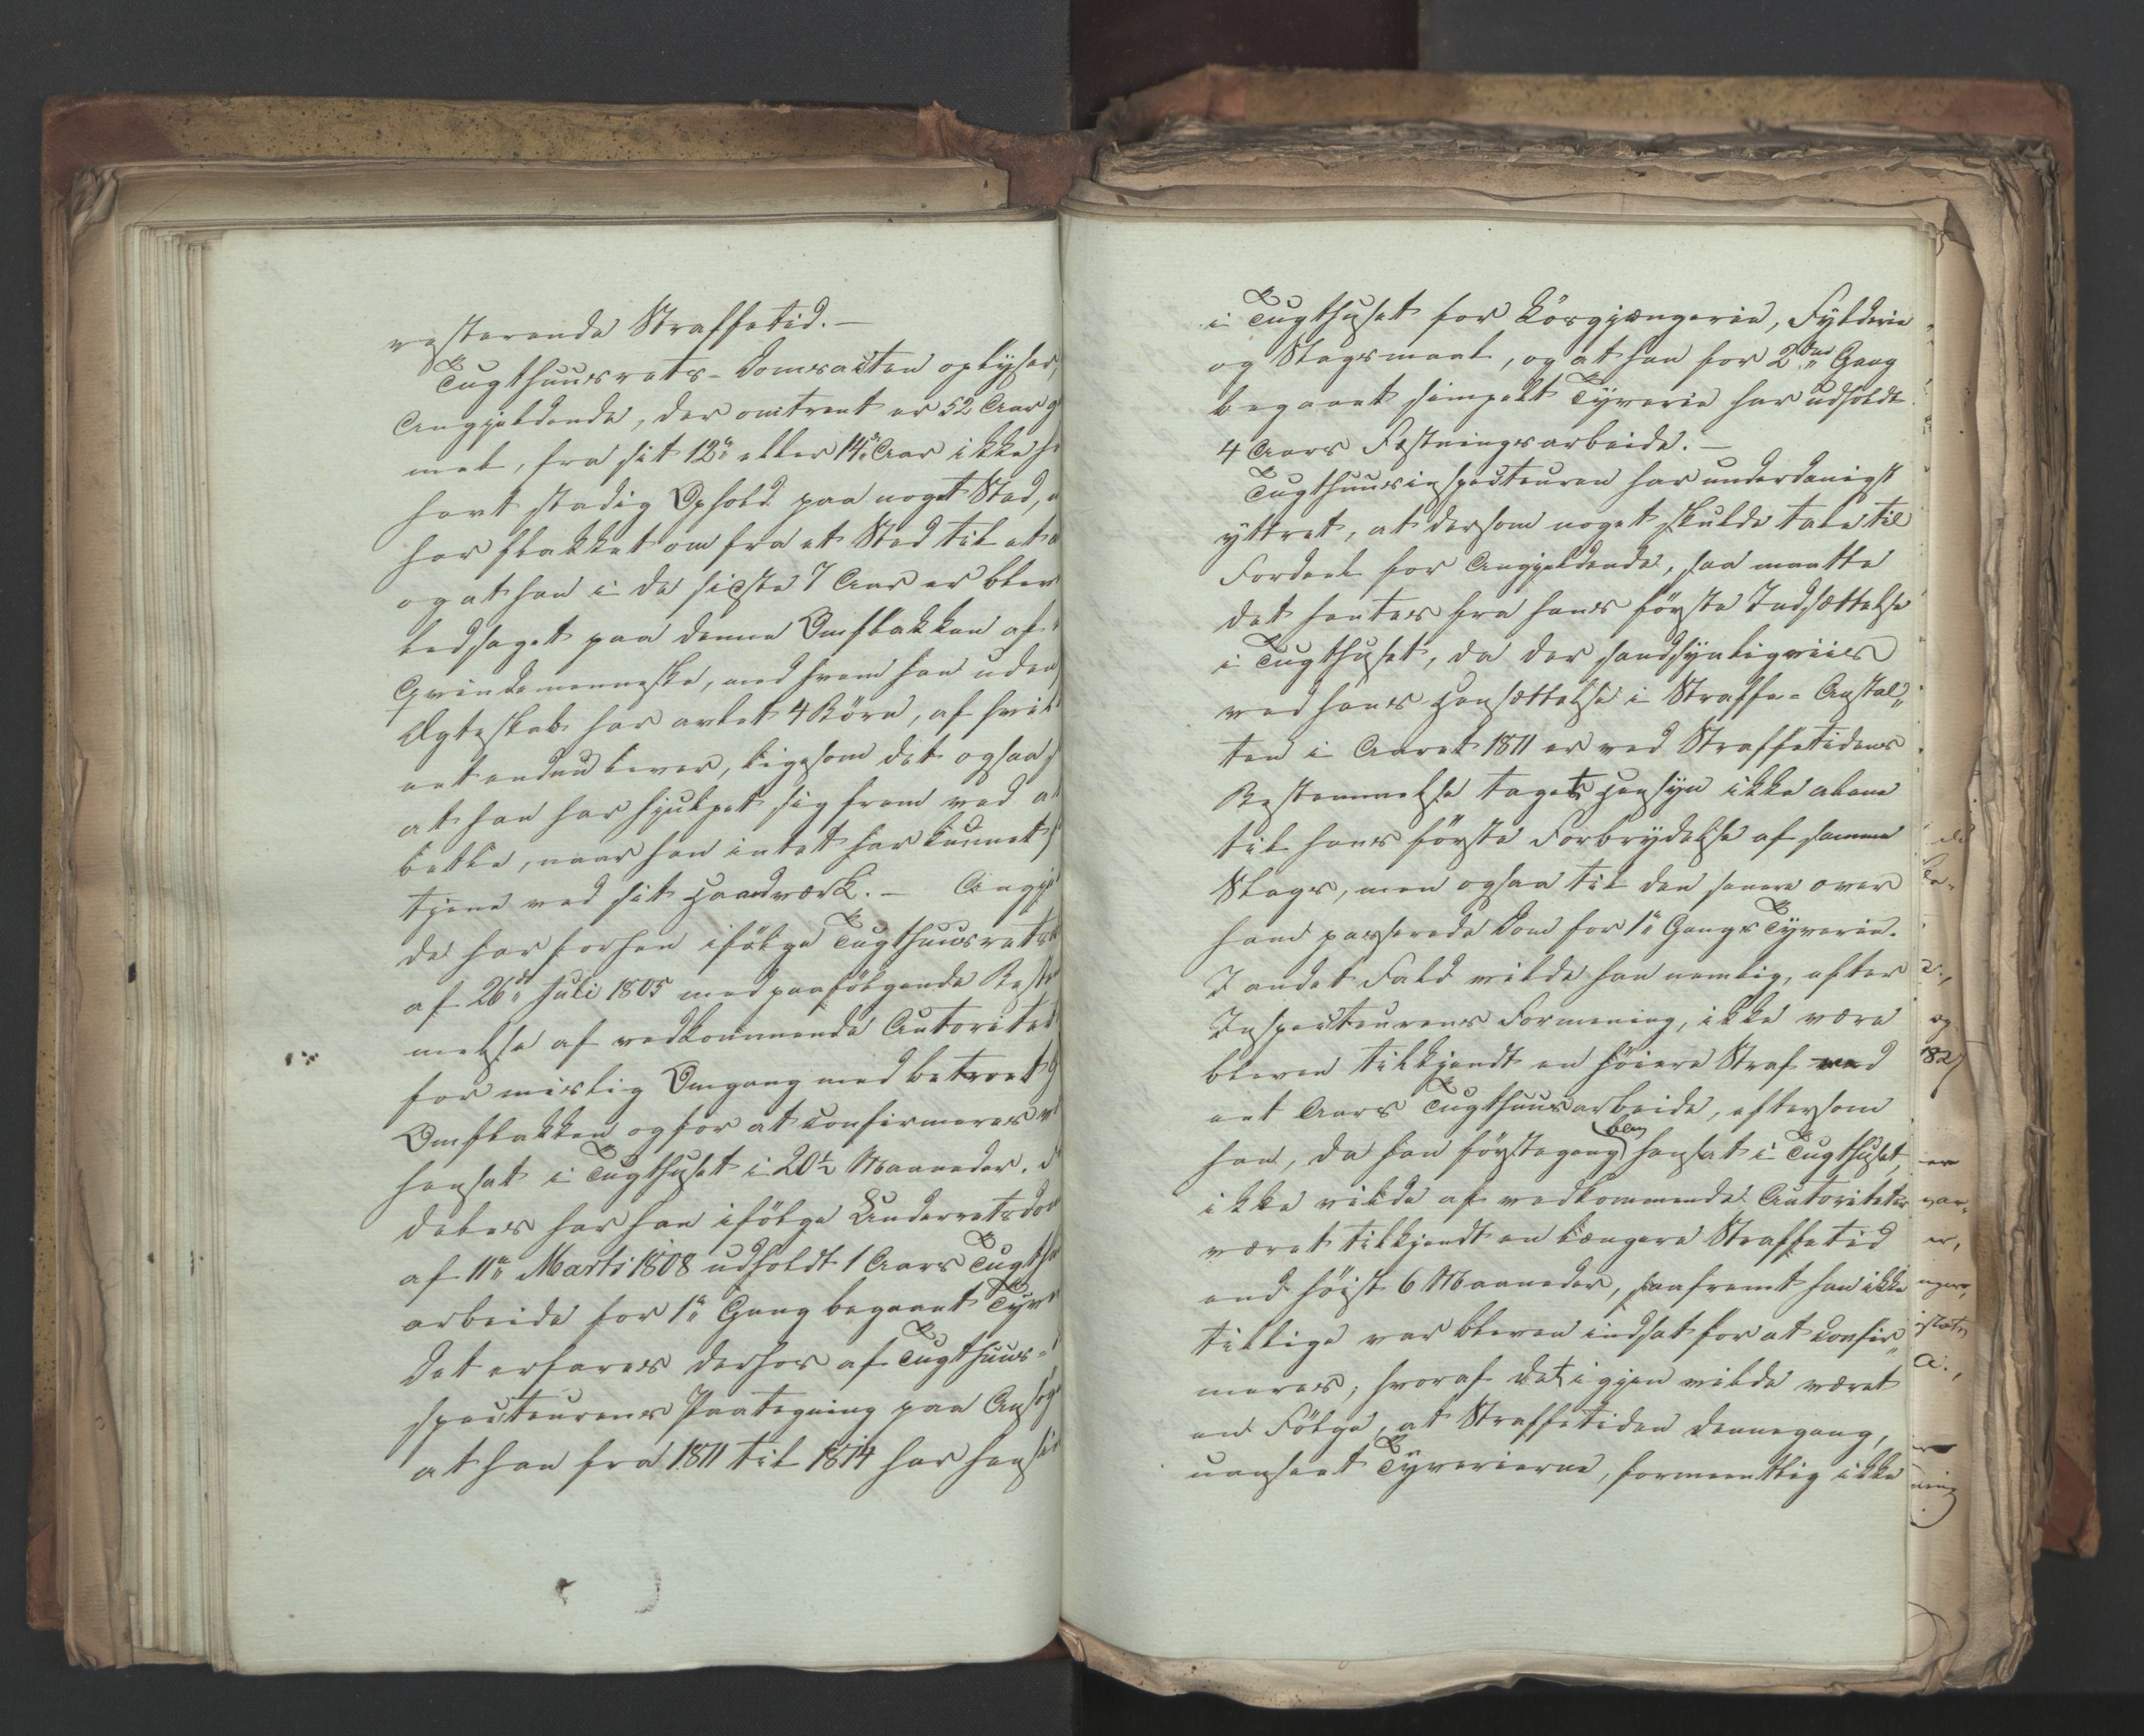 resterende Straffetid.—
Tugthuusrets-Domsacten oplyser,
Angjeldende, der omtrent er 52 Aar g
mel, fra sit 12te eller 14de Aar ikke h
havt stadig Ophold paa noget Sted,
har flakket om fra et Sted til et a
og at han i de sidste 7 Aar er blev
ledsaget paa denne Omflakken af
Qvindemenneske, med hvem han uden
Ægteskab har avlet 4 Børn, af hvil
eet endnu lever, ligesom det ogsaa
at han har hjulpet sig frem ved at
betle, naar han intet har kunnet
tjene ved sit Haandværk.— Angjel
de har forhen ifølge Tugthuusrets
af 26de Juli 1805 med paafølgende Beste
melse af vedkommende Autoritet
for mislig Omgang med betroet G
Omflakken og for at confirmeres
hensat i Tugthuset i 20½ Maaneder.
deles har han ifølge Underretsdom
af 11te Marts 1808 udholdt 1 Aars Tugth
arbeide for 1te Gang begaaet Tyve
Det erfares derhos af Tugthuus-
specteurens Paategning paa Ansøg
at han fra 1811 til 1814 har hens
i Tugthuset for Løsgjængerie, Fylderie
og Slagsmaal, og at han for 2den Gang
begaaet simpelt Tyverie har udholdt
4 Aars Fæstningsarbeide.—
Tugthuusinspecteuren har underdanigst
yttret, at dersom noget skulde tale til
Fordeel for Angjeldende, saa maatte
det hentes fra hans første Indsættelse
i Tugthuset, da der sandsynligviis
ved hans Hensættelse i Straffe-Anstal„
ten i Aaret 1811 er ved Straffetidens
Bestemmelse taget Hensyn ikke alene
til hans første Forbrydelse af samme
Slags, men ogsaa til den senere over
ham passerede Dom for 1te Gangs Tyverie.
I andet Fald vilde han nemlig, efter
Inspecteurens Formening, ikke være
bleven tilkjendt en høiere Straf end
eet Aars Tugthuusarbeide, eftersom
han, da han førstegang blev hensat i Tugthuset,
ikke vilde af vedkommende Autoriteter
været tilkjendt en længere Straffetid
end høist 6 Maaneder, saafremt han ikke
tillige var bleven indsat for at confir„
meres; hvoraf det igjen vilde været
en Følge, at Straffetiden dennegang,
uanseet Tyverierne, formeentlig ikke